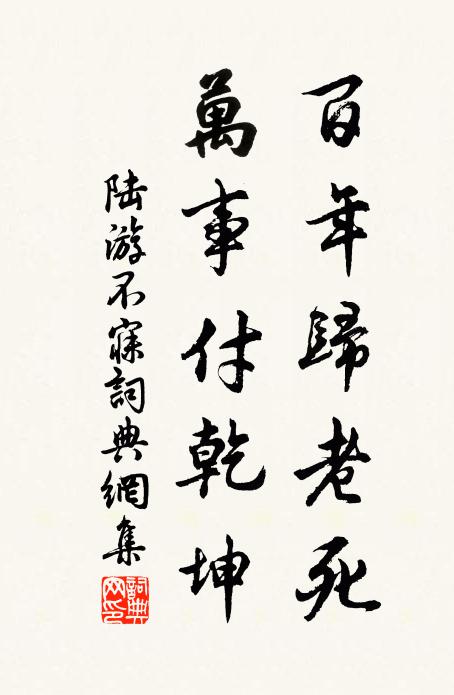 百年歸老死
萬事付乾坤
陸游不寐詞典網集
詞典網印